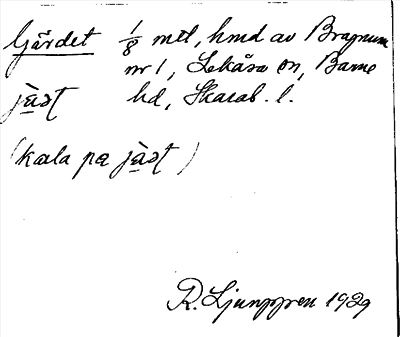 Gärdet 1/8 mtl, hmd av Bragnum
nr 1, Lekåsa sn, Barne
jàət hd, Skarab. l.
(kala pa jàət)
R. Ljunggren 1929